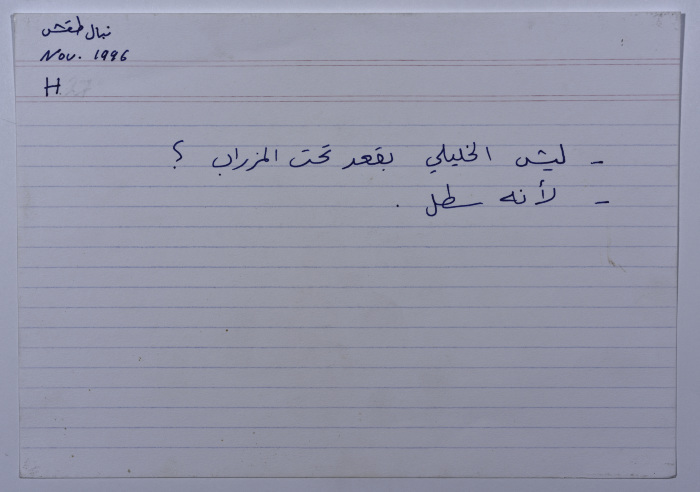 نبال طقش
Nov. 1996
H
- ليش الخليلي بقعد تحت المزراب ؟
- لأنه سطل .